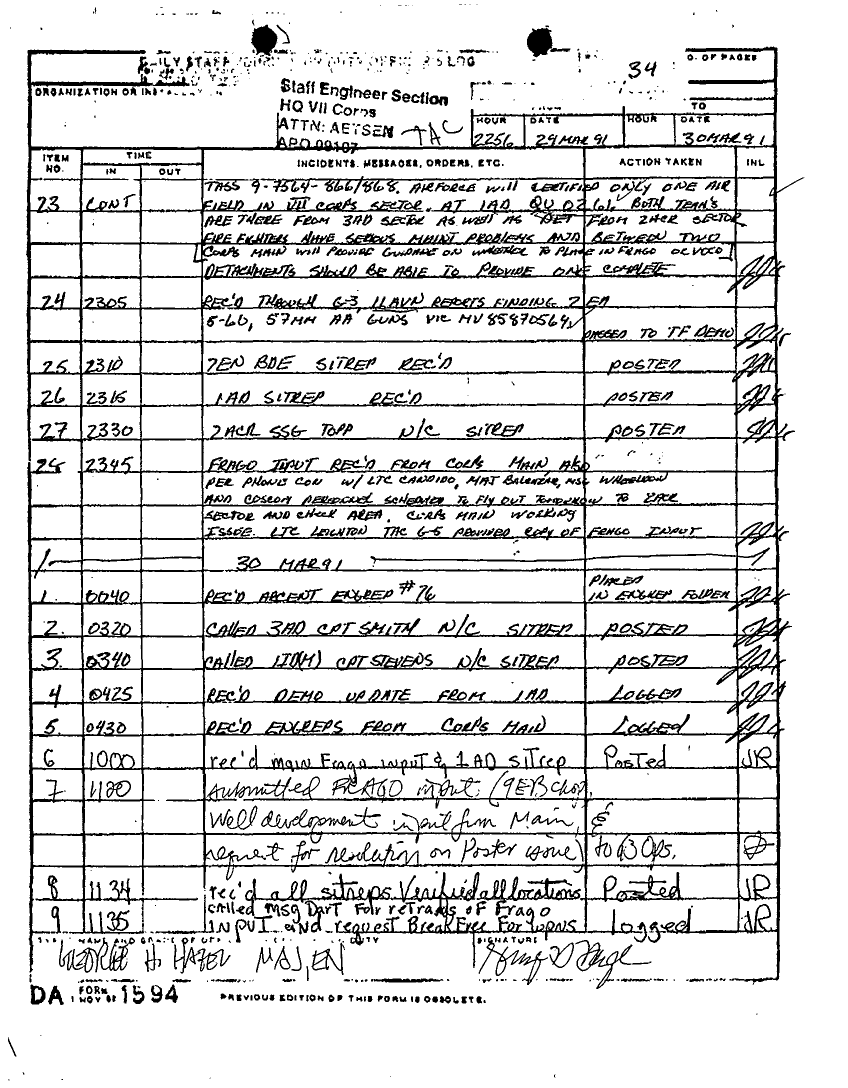 DAILY STAFF JOURNAL OR DUTY OFFICER'S LOG
34
O. OF PAGES
ORGANIZATION OR INSTALL
Staff Engineer Section
HQ VII Corps
ATTN: AETSEN TAC
APO 09107
FROM TO
HOUR DATE HOUR DATE
2256 29 MAR 91 30 MAR 91
ITEM NO. TIME INCIDENTS, MESSAGES, ORDERS, ETC. ACTION TAKEN INL
IN OUT
TASS 9-7564-866/868. AIRFORCE WILL CERTIFIED ONLY ONE AIR
23 CONT FIELD IN VII CORPS SECTOR. AT 1AD QU 02 61. BOTH TEAM'S
ARE THERE FROM 3AD SECTOR AS WELL AS DET FROM 2ACR SECTOR
FIRE FIGHTERS HAVE SERIOUS MAINT PROBLEMS AND BETWEEN TWO
[CORPS MAIN WILL PROVIDE GUIDANCE ON WHETHER TO PLACE IN FRAGO OR VOCO]
DETACHMENTS SHOULD BE ABLE TO PROVIDE ONE COMPLETE
24 2305 REC'D THROUGH G-3, 11AVN REPORTS FINDING 2 EA
S-60, 57MM AA GUNS VIC MV 85870564 PASSED TO TF DEMO
25 2310 7EN BDE SITREP REC'D POSTED
26 2315 1AD SITREP REC'D POSTED
27 2330 2ACR SSG TOPP N/C SITREP POSTED
28 2345 FRAGO INPUT REC'D FROM CORPS MAIN, ALSO
PER PHONE CON W/ LTC CANDIDO, MAJ
AND COSCOM PERSONNEL SCHEDULED TO FLY OUT TOMORROW TO 2ACR
SECTOR AND CHECK AREA. CORPS MAIN WORKING
ISSUE. LTC LEIGHTON TAC G-5 PROVIDED COPY OF FRAGO INPUT
30 MAR 91
1. 0040 REC'D ARCENT ENGREP #76 PLACED IN ENGREP FOLDER
2. 0320 CALLED 3AD CPT SMITH N/C SITREP POSTED
3. 0340 CALLED 1ID(M) CPT STEVENS N/C SITREP POSTED
4 0425 REC'D DEMO UPDATE FROM 1AD LOGGED
5. 0430 REC'D ENGREPS FROM CORPS MAIN LOGGED
6 1000 rec'd main Frago input & 1AD sitrep Posted JR
7 1120 Submitted FRAGO input (9EB chop,
Well development input from Main, &
request for resolution on Poster issue) to G3 Ops.
8 1134 rec'd all sitreps. Verified all locations Posted JR
9 1135 called MSG Dart For retrans of Frago
INPUT and request Break Free For Logged JR
NAME AND GRADE OF DUTY SIGNATURE
GEORGE H. HAZEL MAJ, EN
DA FORM 1 NOV 62 1594 PREVIOUS EDITION OF THIS FORM IS OBSOLETE.